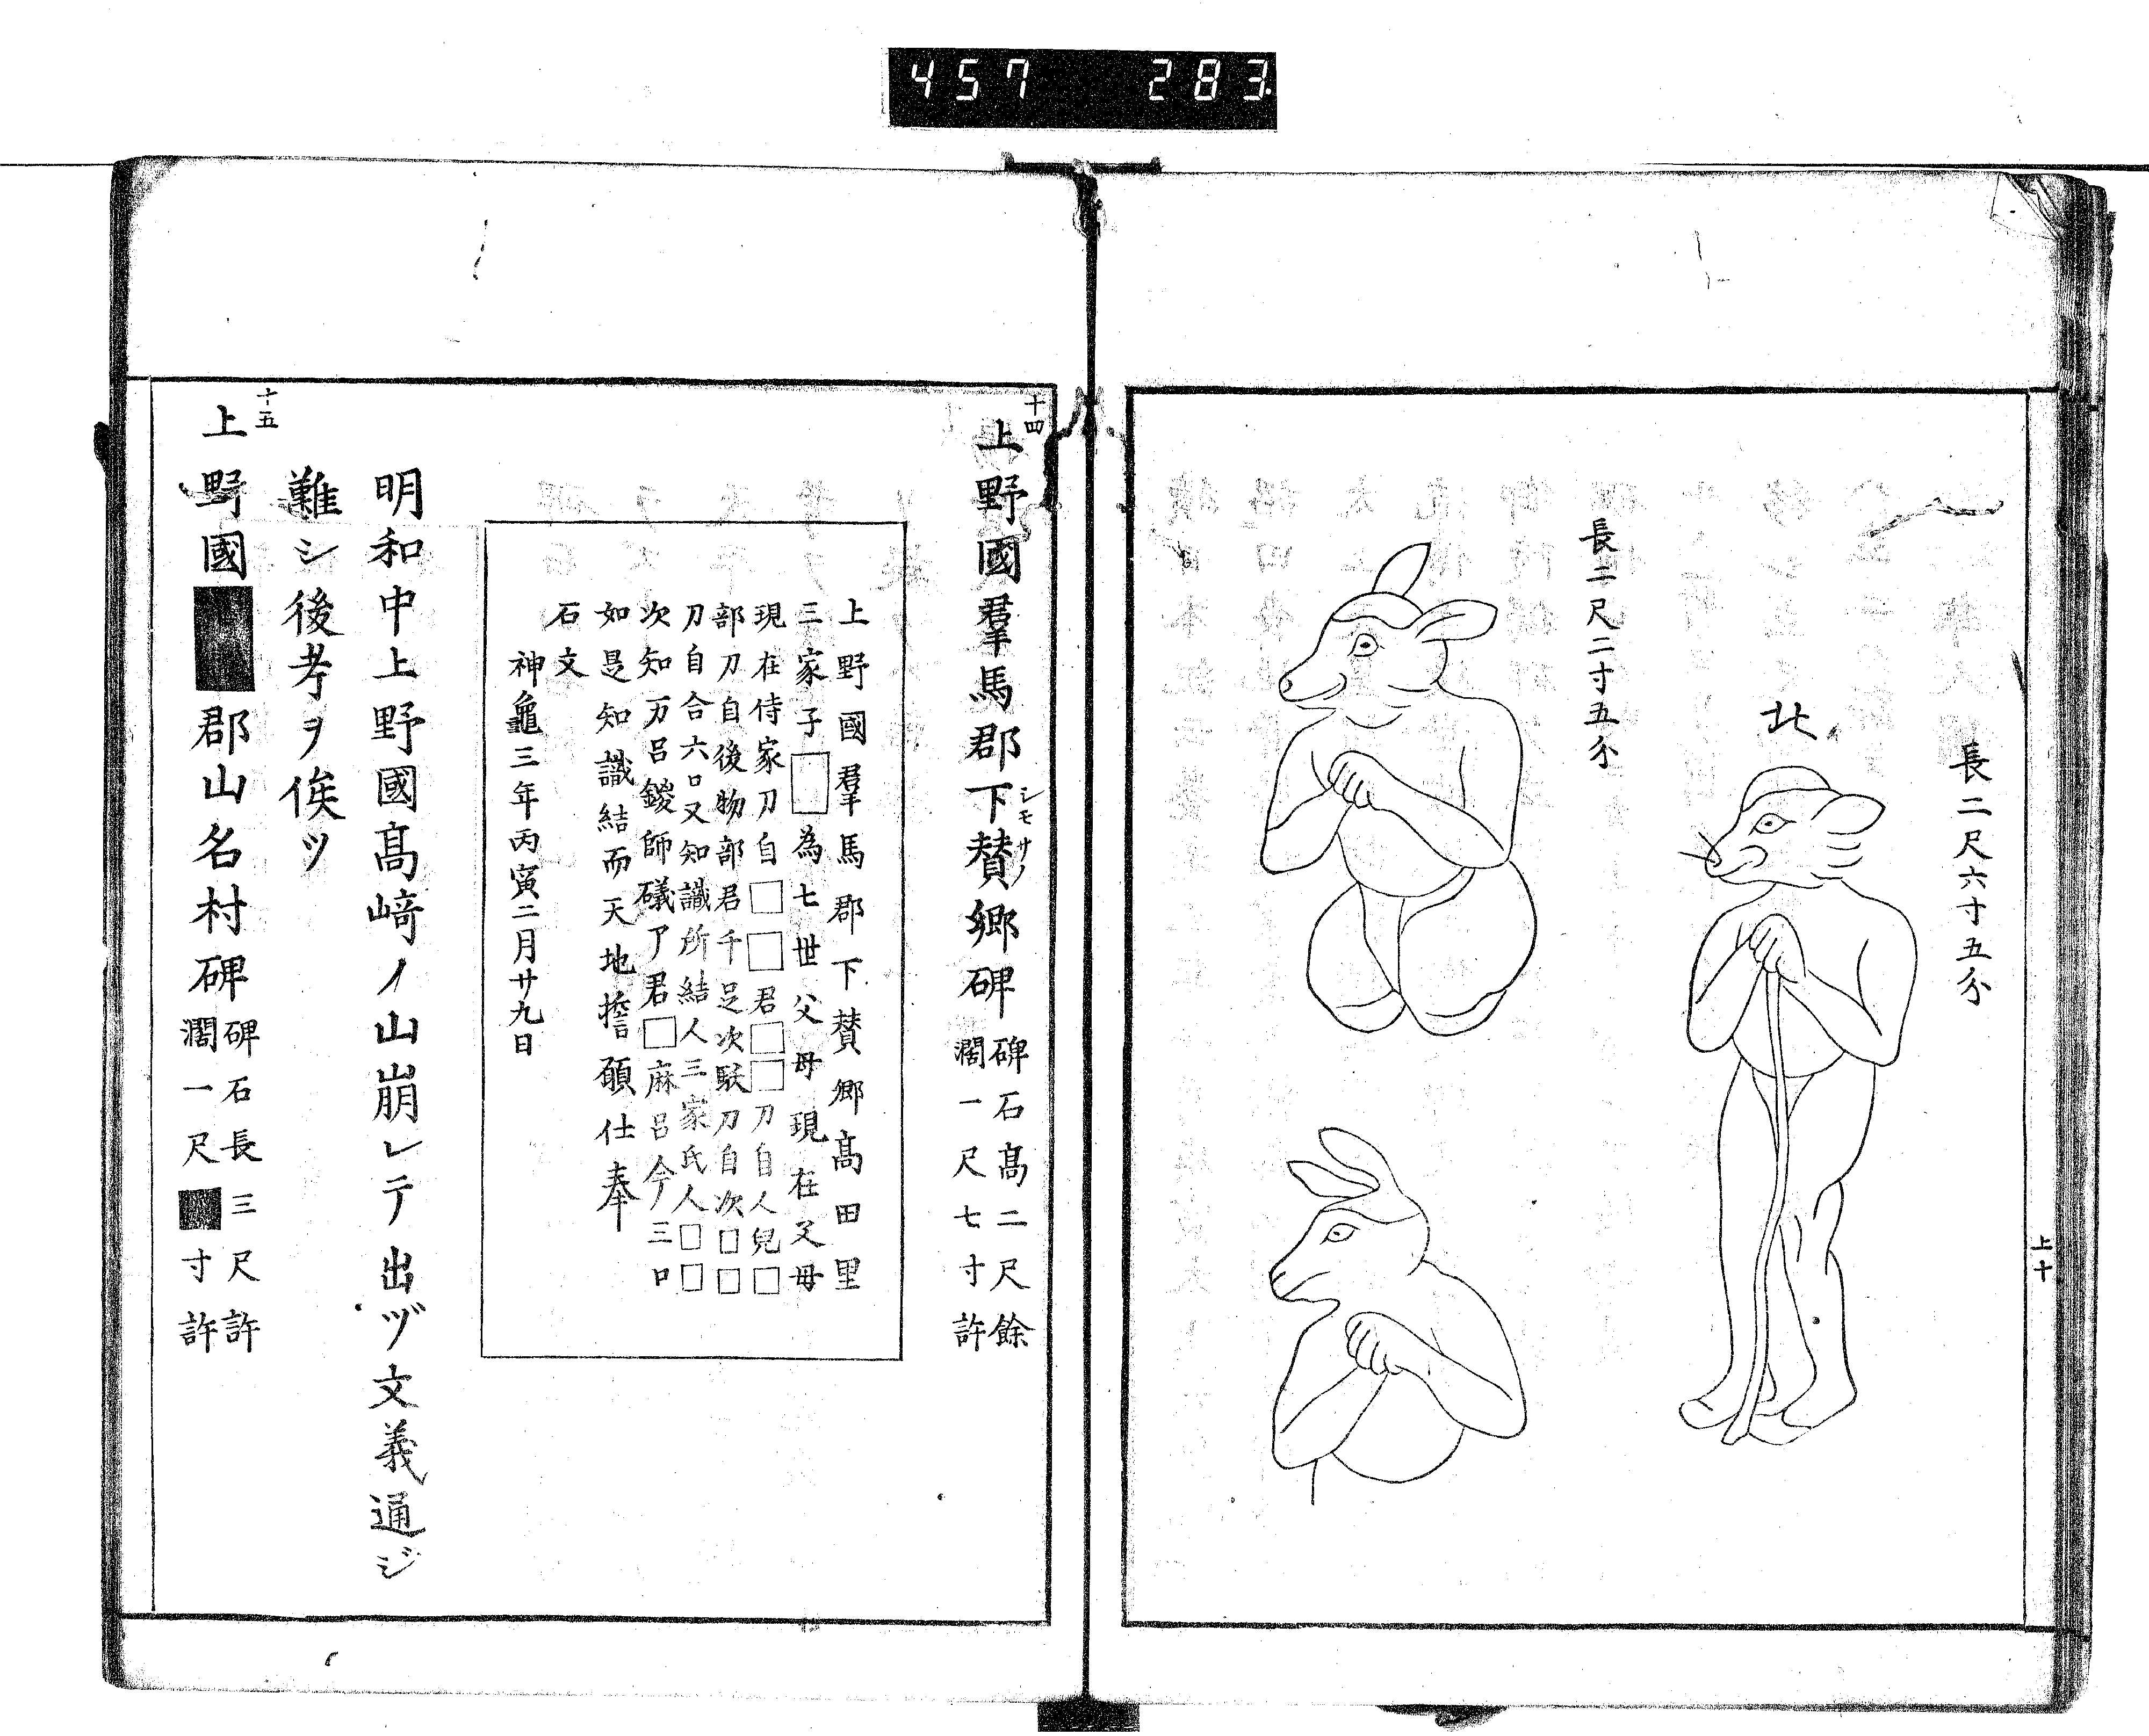 457 283
長二尺六寸五分
北
長二尺二寸五分
上十
十四
上野國羣馬郡下賛郷碑
シモサノ
碑石高二尺餘
濶一尺七寸許
上野國羣馬郡下賛郷高田里
三家子□為七世父母現在父母
現在侍家刀自□□君□□刀自人兒□
部刀自後物部君千足次㸦刀自次□□
刀自合六口又知識所結人三家氏人□□
次知万呂鍐師礒了君□麻呂今三口
如是知識結而天地擔願仕奉
石文
神龜三年丙寅二月廿九日
明和中上野國高﨑ノ山崩レテ出ヅ文義通ジ
難シ後考ヲ俟ツ
十五
上野國■郡山名村碑
碑石長三尺許
濶一尺■寸許